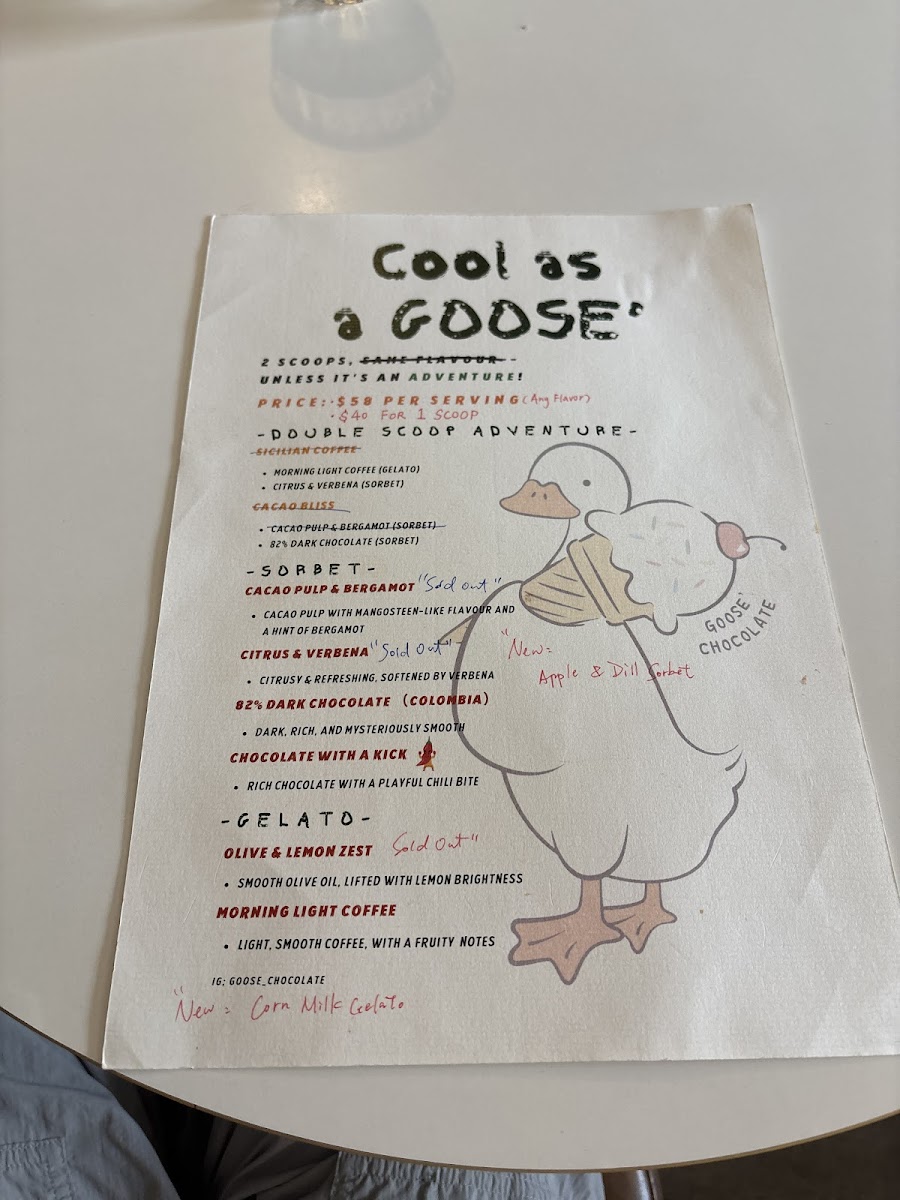 Cool as
a GOOSE'
2 SCOOPS, SAME FLAVOUR -
UNLESS IT'S AN ADVENTURE!
PRICE: · $58 PER SERVING (Any Flavor)
· $40 FOR 1 SCOOP
- DOUBLE SCOOP ADVENTURE -
SICILIAN COFFEE
• MORNING LIGHT COFFEE (GELATO)
• CITRUS & VERBENA (SORBET)
CACAO BLISS
• CACAO PULP & BERGAMOT (SORBET)
• 82% DARK CHOCOLATE (SORBET)
- SORBET -
CACAO PULP & BERGAMOT "Sold out"
• CACAO PULP WITH MANGOSTEEN-LIKE FLAVOUR AND
A HINT OF BERGAMOT
CITRUS & VERBENA "Sold Out"
• CITRUSY & REFRESHING, SOFTENED BY VERBENA
82% DARK CHOCOLATE (COLOMBIA)
• DARK, RICH, AND MYSTERIOUSLY SMOOTH
CHOCOLATE WITH A KICK
• RICH CHOCOLATE WITH A PLAYFUL CHILI BITE
"New:
Apple & Dill Sorbet
GOOSE'
CHOCOLATE
- GELATO -
OLIVE & LEMON ZEST Sold Out"
• SMOOTH OLIVE OIL, LIFTED WITH LEMON BRIGHTNESS
MORNING LIGHT COFFEE
• LIGHT, SMOOTH COFFEE, WITH A FRUITY NOTES
IG: GOOSE_CHOCOLATE
"New: Corn Milk Gelato